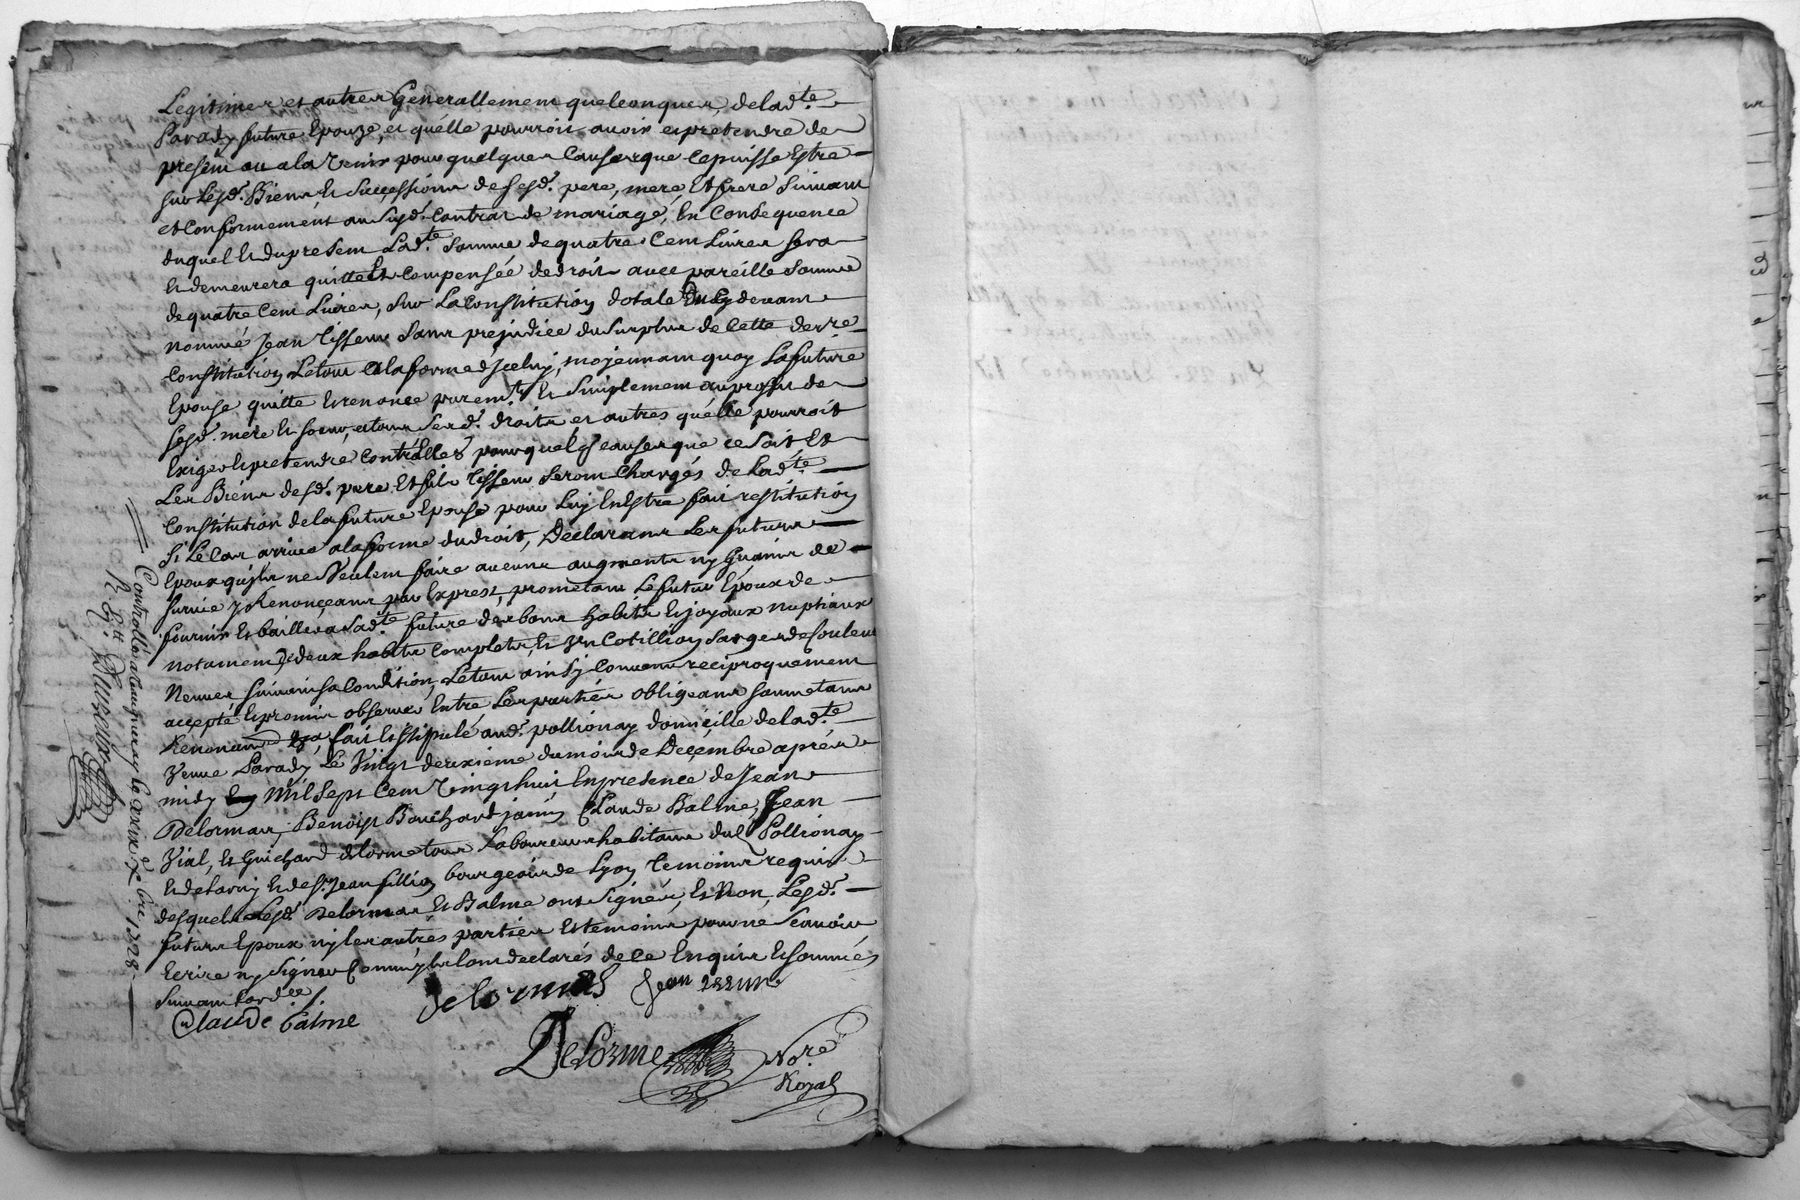 Legitimes et autres Generallement quelconques, de lad.te
Parady future Epouze, et qu'elle pourroit avoir et pretendre de
present ou a la Venir pour quelques Causes que ce puisse Estre
sur Lesd. Biens et Successions de sesd. pere, mere Et frere Suivant
et Conformement au Susd. Contrat de mariage, En Consequence
duquel et du present Lad.te Somme de quatre Cent Livres sera
Et demeurera quitte Et Compensée de droit avec pareille Somme
de quatre Cent Livres, Sur La Constitution dotale Du Cy devant
nommé Jean Tisseur Sans prejudice du Surplus de Cette der.re
Constitution Le tout a la forme d'Jceluy, moyennant quoy La future
Epouse quitte Et renonce purem.t Et Simplement au profit de
sesd. mere Et soeur, a tous Sesd. droits et autres qu'elle pourroit
Exiger Et pretendre contr'Elles pour quelq. causes que ce Soit, Et
Les Biens desd. pere Et fils Tisseur Seront Chargés de Lad.te
Constitution de la future Epouse pour Luy En Estre fait restitution
Si Le Cas arrive a la forme du droit, Declarant Les futurs
Epoux qu'jls ne Veulent faire aucuns augments ny Guains de
Survie y Renonçeant par Exprest, prometant Le futur Epoux de
fournir Et bailler a Sad.te future des bons habits Et joyaux nuptiaux
notament de deux habits Complets, Et Vn Cotillion Sarge de Couleur
Neuves Suivant sa Condition, Le tout ainsy Convenu reciproquement
accepté Et promis observer Entre Les parties obligeant soumetant
Renonçant fait Et Stipulé aud. pollionay domicille de lad.te
Veuve Parady Le Vingt deuxieme du mois de Deçembre aprés
midy mil Sept Cent Vingt huit En presence de Jean
Delormas, Benoist Bouchard Claude Balme, Jean
Vial, Et Guichard delorme tous Laboureurs habitans dud. Pollionay
Et de Et de S.r Jean fillion bourgeois de Lyon Temoins requis
desquels Lesd. Delormas Et Balme ont Signés, Et Non, Lesd.
futurs Epoux ny les autres parties Et temoins pour ne Scavoir
Ecrire ny Signer Comm'jls L'ont declarés de ce Enquis Et sommés
Suivant L'ord.ce ./.
Claude balme
delormas
Jean
DeLorme No.re
Royal
Controllé a le Xbre 1728
R. 6tt.